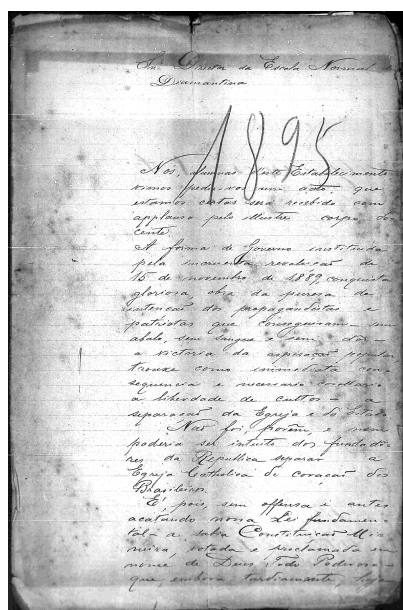 Snr. Director da Escola Normal de
Diamantina
1895
Nos, alumnas deste Estabelecimento
vimos pedir-vos um acto que
estamos certas será recebido com
applauso pelo illustre corpo do
cente.
A forma de Governo instituida
pela incruenta revolução de
15 de novembro de 1889, conquista
gloriosa, obra da pureza de
intenção dos propagandistas e
patriotas que conseguiram sem
abalo, sem sangue e sem dor -
a victoria da aspiração popular
trouxe como immediata con
sequencia e necessario corollario
a liberdade de cultos - a
separação da Egreja e do Estado
Não foi, porém, e nem
poderia ser intuito dos fundado
res da Republica separar a
Egreja Catholica do coração dos
Brasileiros.
É, pois, sem offensa e antes
acatando nossa Lei fundamen
tal - a sabia Constituição Mi
neira, votada e proclamada em
nome de Deus Todo Poderoso -
que, embora tardiamente, hoje